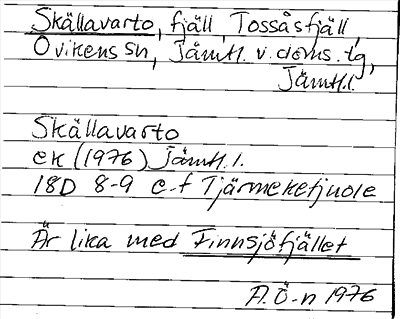 Skällavarto, fjäll, Tossåsfjäll,
Ovikens sn, Jämtl. v. doms. tg,
Jämtl.l.
Skällavarto
ek (1976) Jämtl. l.
18D 8-9 e-f Tjärmeketjuole
Är lika med Finnsjöfjället
A.Ö-n 1976